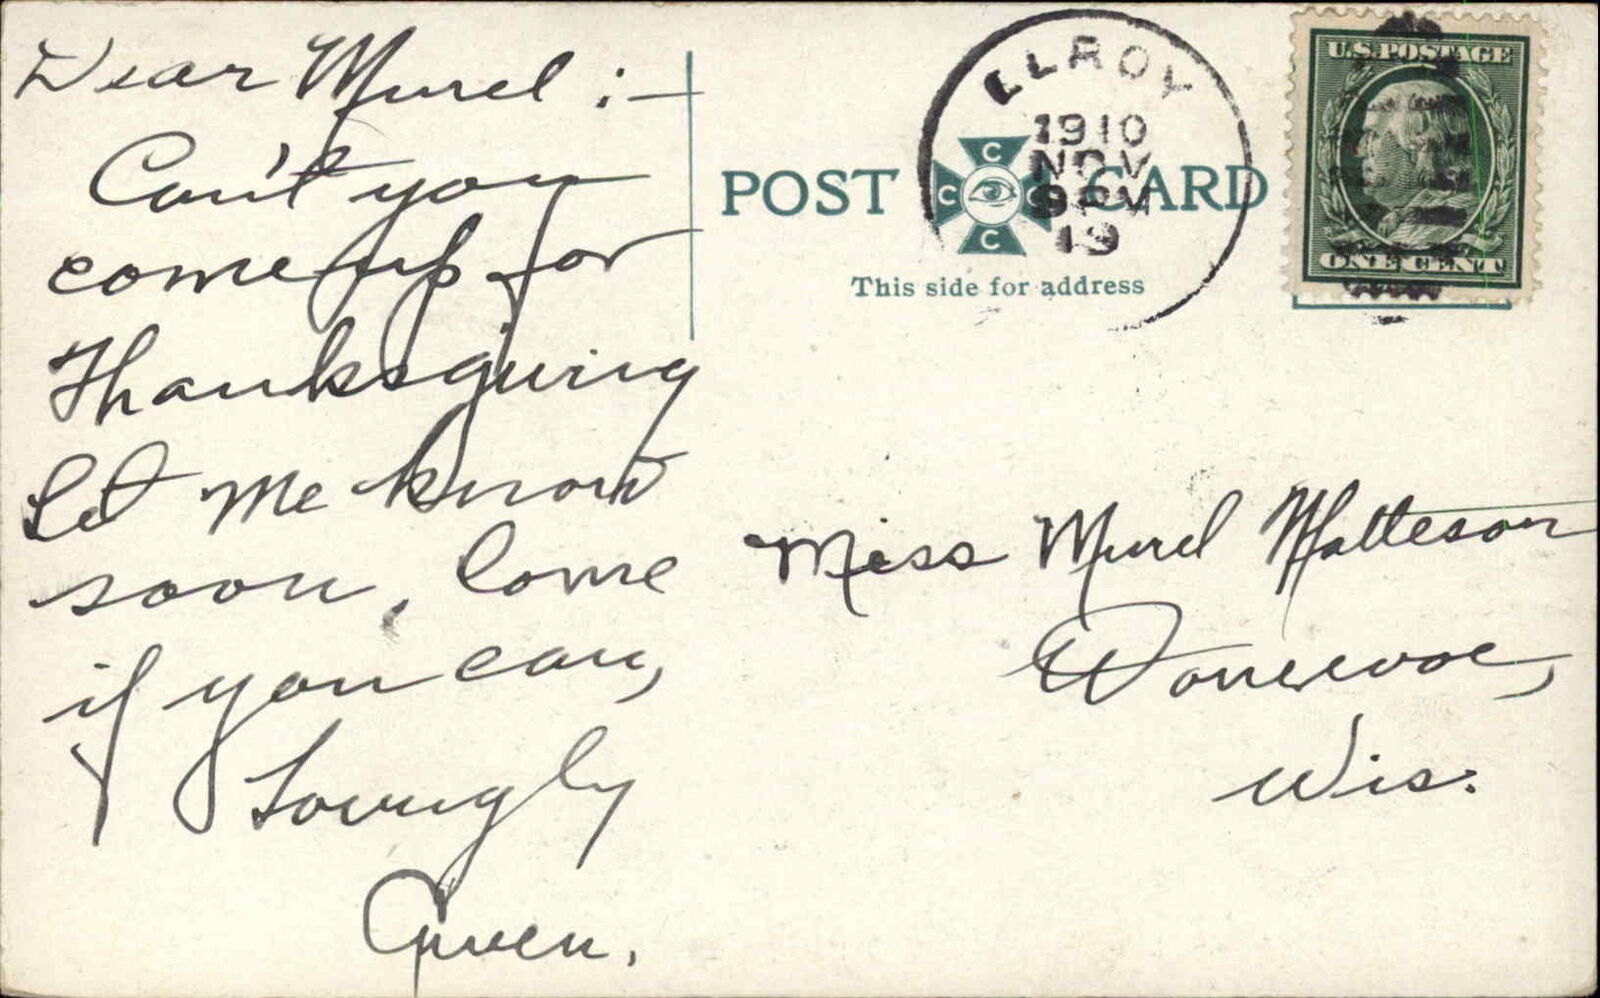 Dear Murel :—
Can't you
come up for
Thanksgiving
Let me know
soon, Come
if you can,
Lovingly
Gwen.
POST CARD
C C C C
This side for address
ELROY
1910
NOV
9 PM
19
U.S. POSTAGE
ONE CENT
Miss Murel Matteson
Wonewoc,
Wis.